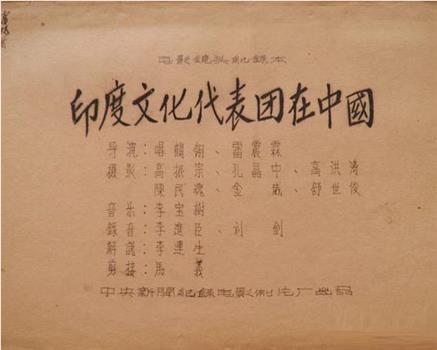 电影鏡头纪錄本
印度文化代表团在中國
导演：唱鶴翎、雷震霖
摄影：高振宗、孔晶中、高洪涛
陳民魂、金威、舒世俊
音乐：李宝樹
錄音：李進臣、刘
解說：李連生
剪接：馬義
中央新聞紀錄电影制片厂出品